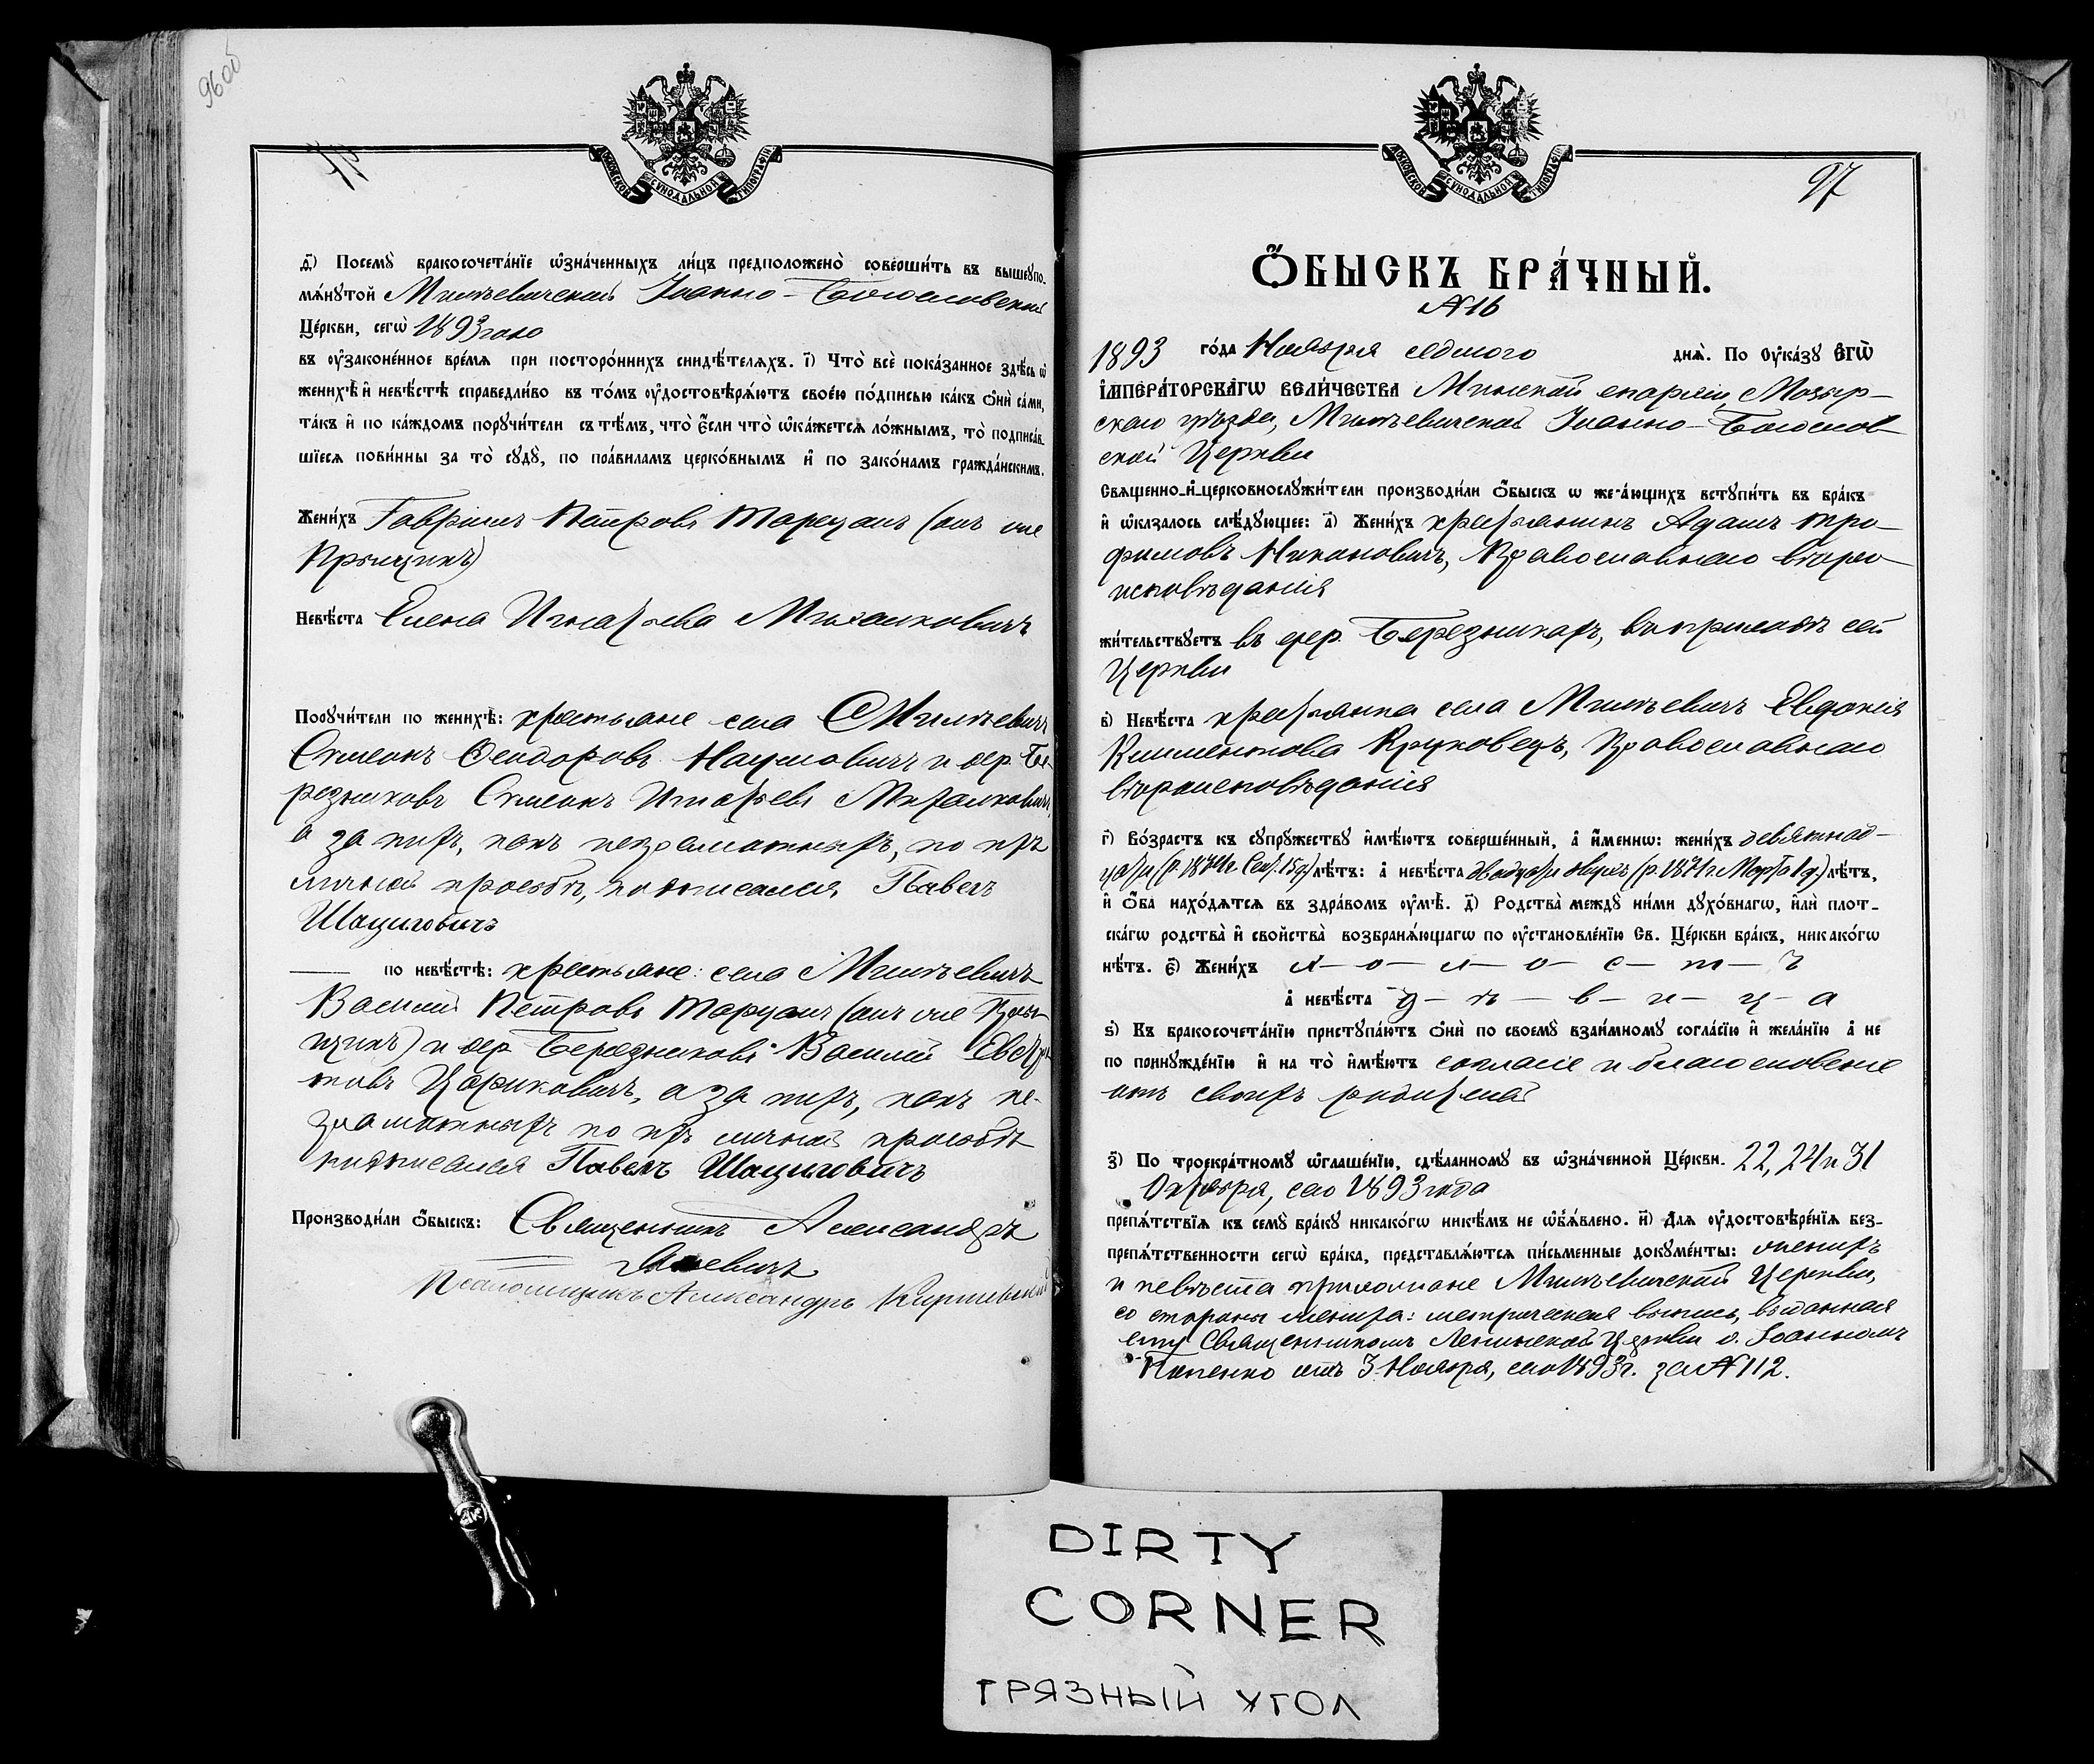 96об
МОСКОВСКОЙ СѴНОДАЛЬНОЙ ТИПОГРАФІИ
д҃) Посемꙋ̀ бракосочета́нїе ѡ҆зна́ченныхъ ли́цъ предположено̀ соверши́ть въ вышеꙋпо-
мѧ́нꙋтой Милевичской Іоанно-Богословской
Це́ркви, сегѡ̀ 1893 года
въ ᲂу҆законе́нное вре́мѧ при посторо́ннихъ свидѣ́телѧхъ. і҃) Что̀ всѐ пока́занное здѣ́сь ѡ҆
женихѣ̀ и҆ невѣ́стѣ справедли́во въ то́мъ ᲂу҆достовѣрѧ́ютъ свое́ю по́дписью ка́къ ѻ҆нѝ са́ми,
та́къ и҆ по ка́ждомъ порꙋчи́тели съ тѣ́мъ, что̀ є҆́сли что̀ ѡ҆ка́жетсѧ ло́жнымъ, то̀ подписа́в-
шїесѧ пови́нны за то̀ сꙋдꙋ̀, по пра́виламъ церко́внымъ и҆ по зако́намъ гражда́нскимъ.
Жени́хъ Гавріилъ Петровъ Тарцанъ (онъ же
Прыщикъ)
Невѣ́ста Елена Игнатьева Михалковичъ
Порꙋчи́тели по женихѣ̀: крестьяне села Милѣевичъ
Сѵмеонъ Ѳеодоровъ Наумовичъ и дер. Бе-
резняковъ Сѵмеонъ Игнатьевъ Михалковичъ,
а за нихъ, какъ неграмотныхъ, по ихъ
личной просьбѣ, подписался Павелъ
Шациловичъ
по невѣ́стѣ: крестьяне: села Милѣевичъ
Василій Петровъ Тарцанъ (онъ же Пры-
щикъ) и дер. Березняковъ Василій
Цариковичъ, а за нихъ, какъ не-
грамотныхъ по ихъ личной просьбѣ
подписался Павелъ Шациловичъ
Производи́ли ѻ҆́быскъ: Священникъ Александръ
Псаломщикъ Александръ
МОСКОВСКОЙ СѴНОДАЛЬНОЙ ТИПОГРАФІИ
97
Ѻ҆́БЫСКЪ БРА́ЧНЫЙ.
№ 16
1893 го́да Ноября седьмого днѧ̀. По ᲂу҆ка́зꙋ є҆гѡ̀
и҆мпера́торскагѡ вели́чества Минской епархіи, Мозыр-
скаго уѣзда, Милѣевичской Іоанно-Богослов-
ской Церкви
Свѧщенно-и҆-церковнослꙋжи́тели производи́ли ѻ҆́быскъ ѡ҆ жела́ющихъ вступи́ть въ бра́къ
и҆ ѡ҆казалось слѣ́дующее: а҃) Жени́хъ крестьянинъ Адамъ Тро-
фимовъ Никоновичъ, Православнаго вѣро-
исповѣданія
жи́тельствꙋетъ въ дер. Березникахъ, въ приходѣ сей
Церкви
в҃) Невѣ́ста крестьянка села Милѣевичъ Евдокія
Климентова Круковецъ, Православнаго
вѣроисповѣданія
г҃) Во́зрастъ къ сꙋпрꙋ́жествꙋ и҆мѣ́ютъ соверше́нный, а҆ и҆́меннѡ: жени́хъ девятнад-
цати (р. 1874 г. Сент. 15 д.) лѣ́тъ: а҆ невѣ́ста двадцати двухъ (р. 1871 г. Марта 1 д.) лѣ́тъ,
и҆ ѻ҆́ба нахо́дѧтсѧ въ здра́вомъ ᲂу҆мѣ̀. д҃) Родства̀ междꙋ̀ ни́ми дꙋхо́внагѡ, и҆лѝ плот-
ска́гѡ родства̀ и҆ свойства̀ возбранѧ́ющагѡ по ᲂу҆становле́нїю Св. Це́ркви бра́къ, никако́гѡ
нѣ́тъ. є҃) Жени́хъ х— о— л— о— с— т— ъ
а҆ невѣ́ста д— ѣ— в— и— ц— а
ѕ҃) Къ бракосочета́нїю пристꙋпа́ютъ ѻ҆нѝ по своемꙋ̀ взаи́мномꙋ согла́сїю и҆ жела́нїю а҆ не
по принꙋжде́нїю и҆ на то̀ и҆мѣ́ютъ согласіе и благословеніе
отъ своихъ родителей
з҃) По троекра́тномꙋ ѡ҆глаше́нїю, сдѣ́ланномꙋ въ ѡ҆зна́ченной Це́ркви. 22, 24 и 31
Октября, сего 1893 года
препѧ́тствїѧ къ семꙋ̀ бра́кꙋ никако́гѡ никѣ́мъ не ѡ҆б̾ѧ́влено. и҃) Длѧ ᲂу҆достовѣре́нїѧ без-
препѧ́тственности сегѡ̀ бра́ка, представлѧ́ютсѧ пи́сьменные докꙋме́нты: женихъ
и невѣста прихожане Милѣевичской Церкви,
со стороны жениха: метрическая выпись, выданная
ему Священникомъ Ленинской Церкви о. Іоанномъ
Паненко отъ 3 Ноября, сего 1893 г. за № 112.
DIRTY
CORNER
ГРЯЗНЫЙ УГОЛ